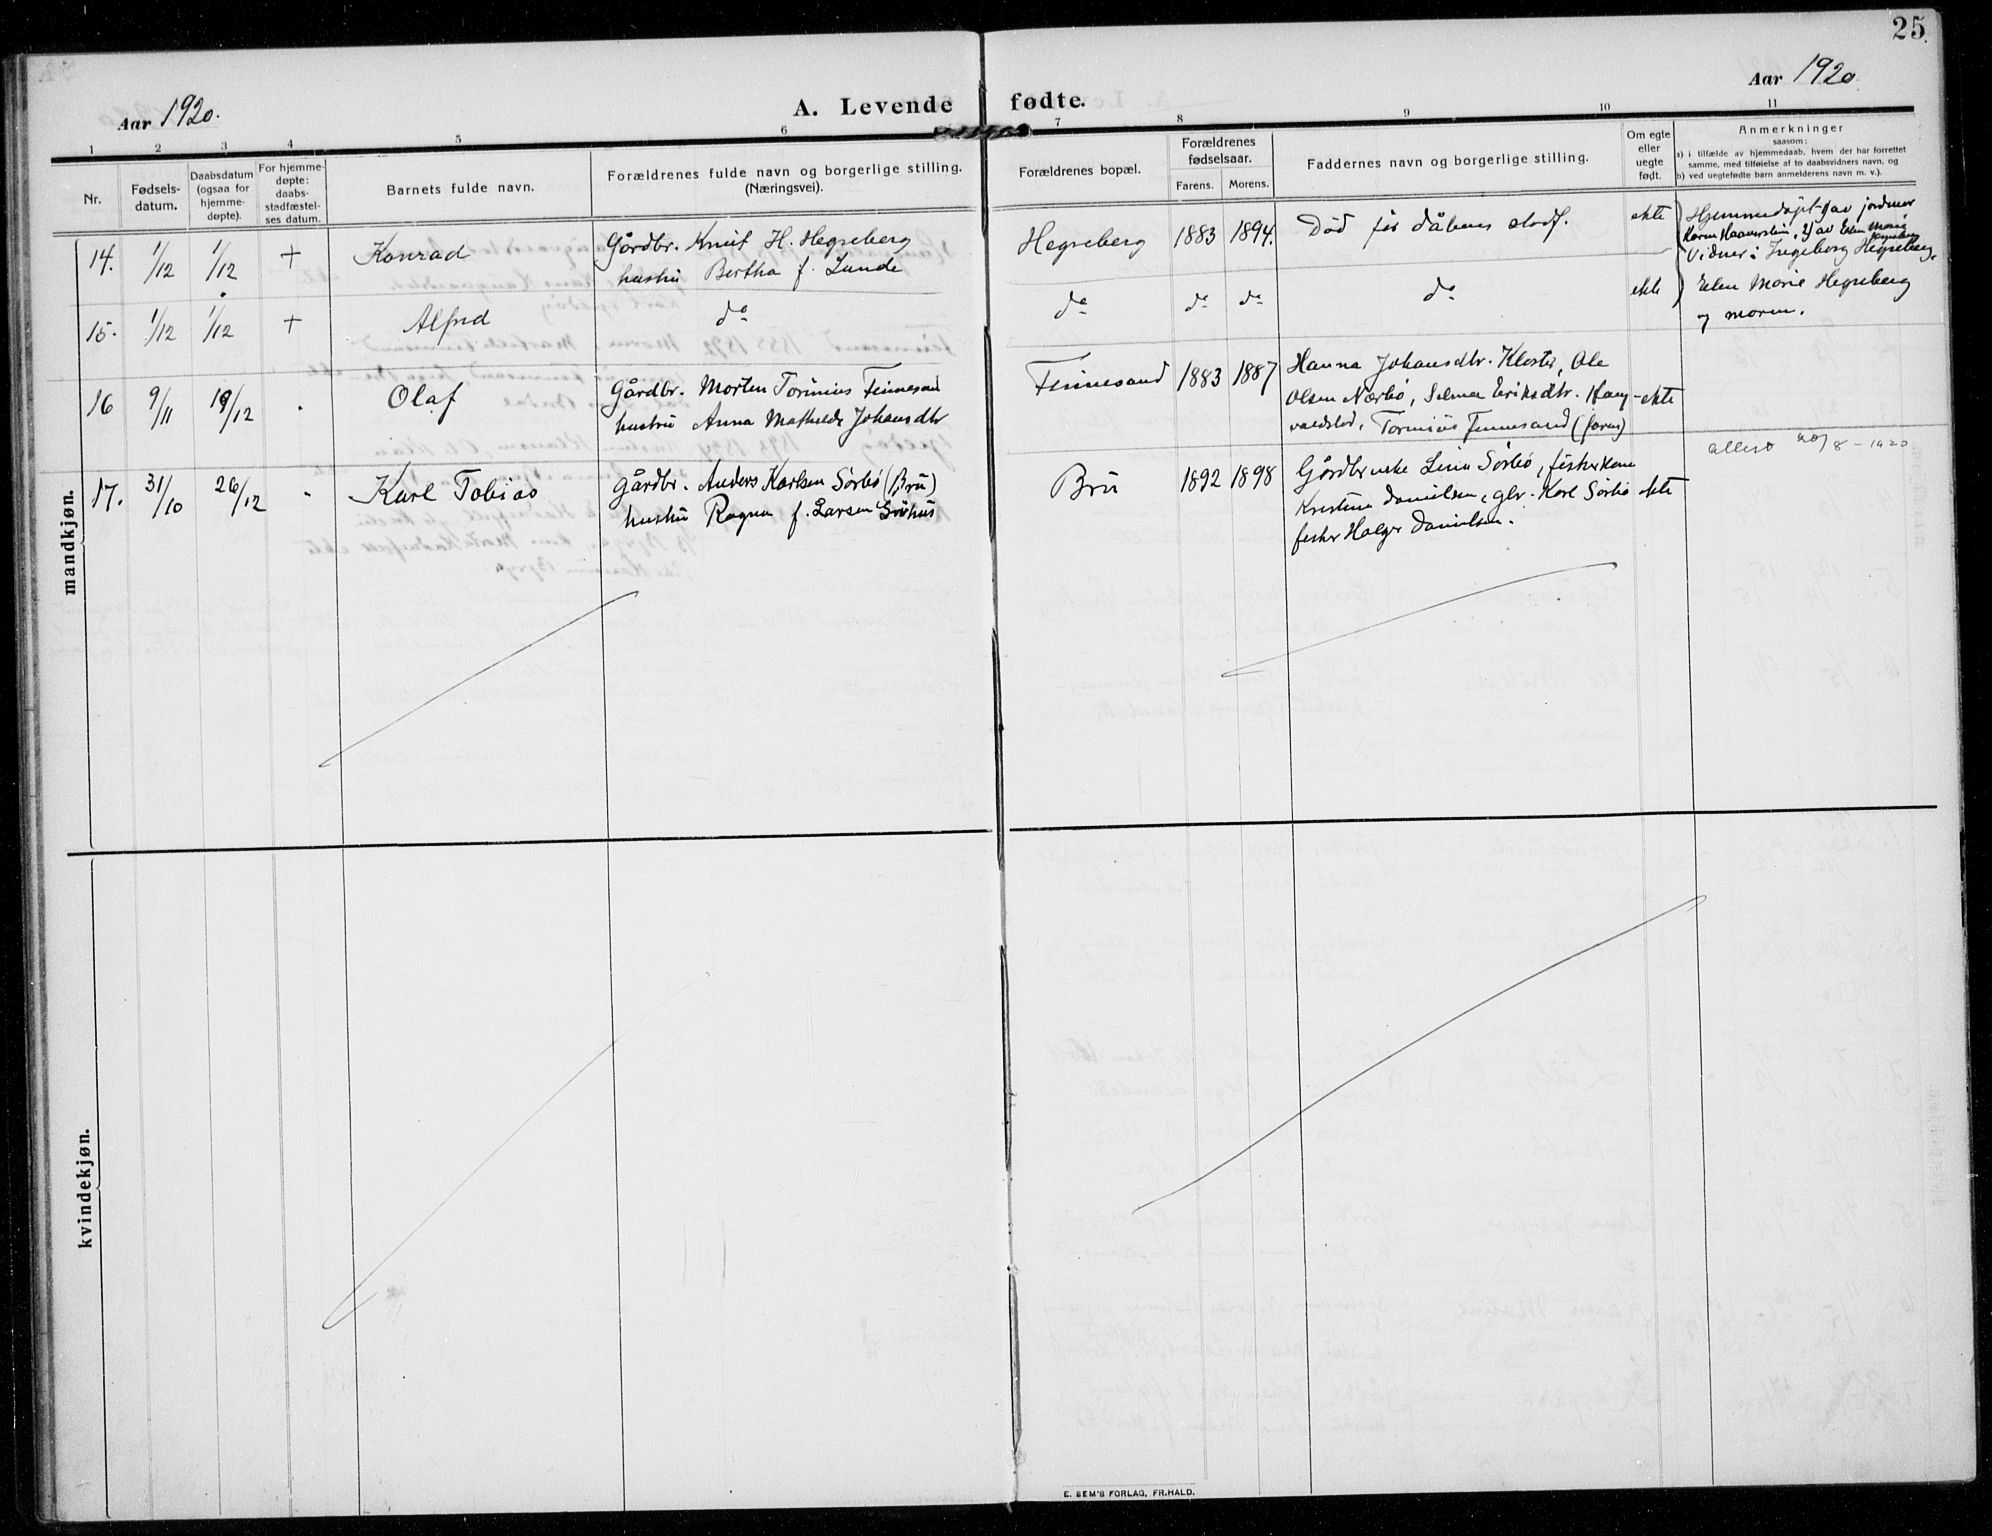 25.
Aar 1920.
A. Levende fødte.
Aar 1920.
1 2 3 4 5 6 7 8 9 10 11
Nr.
Fødsels-
datum.
Daabsdatum
(ogsaa for
hjemme-
døpte).
For hjemme-
døpte:
daabs-
stadfæstel-
ses datum.
Barnets fulde navn.
Forældrenes fulde navn og borgerlige stilling.
(Næringsvei).
Forældrenes bopæl.
Forældrenes
fødselsaar.
Farens. Morens.
Faddernes navn og borgerlige stilling.
Om egte
eller
uegte
født.
Anmerkninger
saasom:
a) i tilfælde av hjemmedaab, hvem der har forrettet
samme, med tilføielse af to daabsvidners navn, og
b) ved uegtefødte barn anmelderens navn m. v.).
mandkjøn.
14. 1/12 1/12 + Konrad
Gårdbr. Knut H. Hegreberg
hustru Bertha f. Lunde
Hegreberg 1883 1894. Død før dåbens stadf. ekte
Hjemmedøpt 1) av jordmor
Karen 2) av Elen Marie
Hegreberg
Vidner: Ingeborg Hegreberg,
Elen Marie Hegreberg
og moren.
15. 1/12 1/12 + Alfred do do do do do ekte
16 9/11 19/12 . Olaf
Gårdbr. Morten Torinius Finnesand
hustru Anna Mathilde Johansdtr
Finnesand 1883 1887
Hanna Johansdtr. Kloster, Ole
Olsen Nærbø, Selma Eriksdtr. Haug-
valdstad, Torinius Finnesand (faren)
ekte
17. 31/10 26/12 . Karl Tobias
Gårdbr. Anders Karlsen Sørbø (Bru)
hustru Ragna f. Larsen Sørhus
Bru 1892 1898
Gårdbruske Lina Sørbø, fiskerkone
Kristine Danielsen, gbr. Karl Sørbø
fisker Holger Danielsen.
ekte
20/8 - 1920
kvindekjøn.
E. SEM'S FORLAG, FR.HALD.